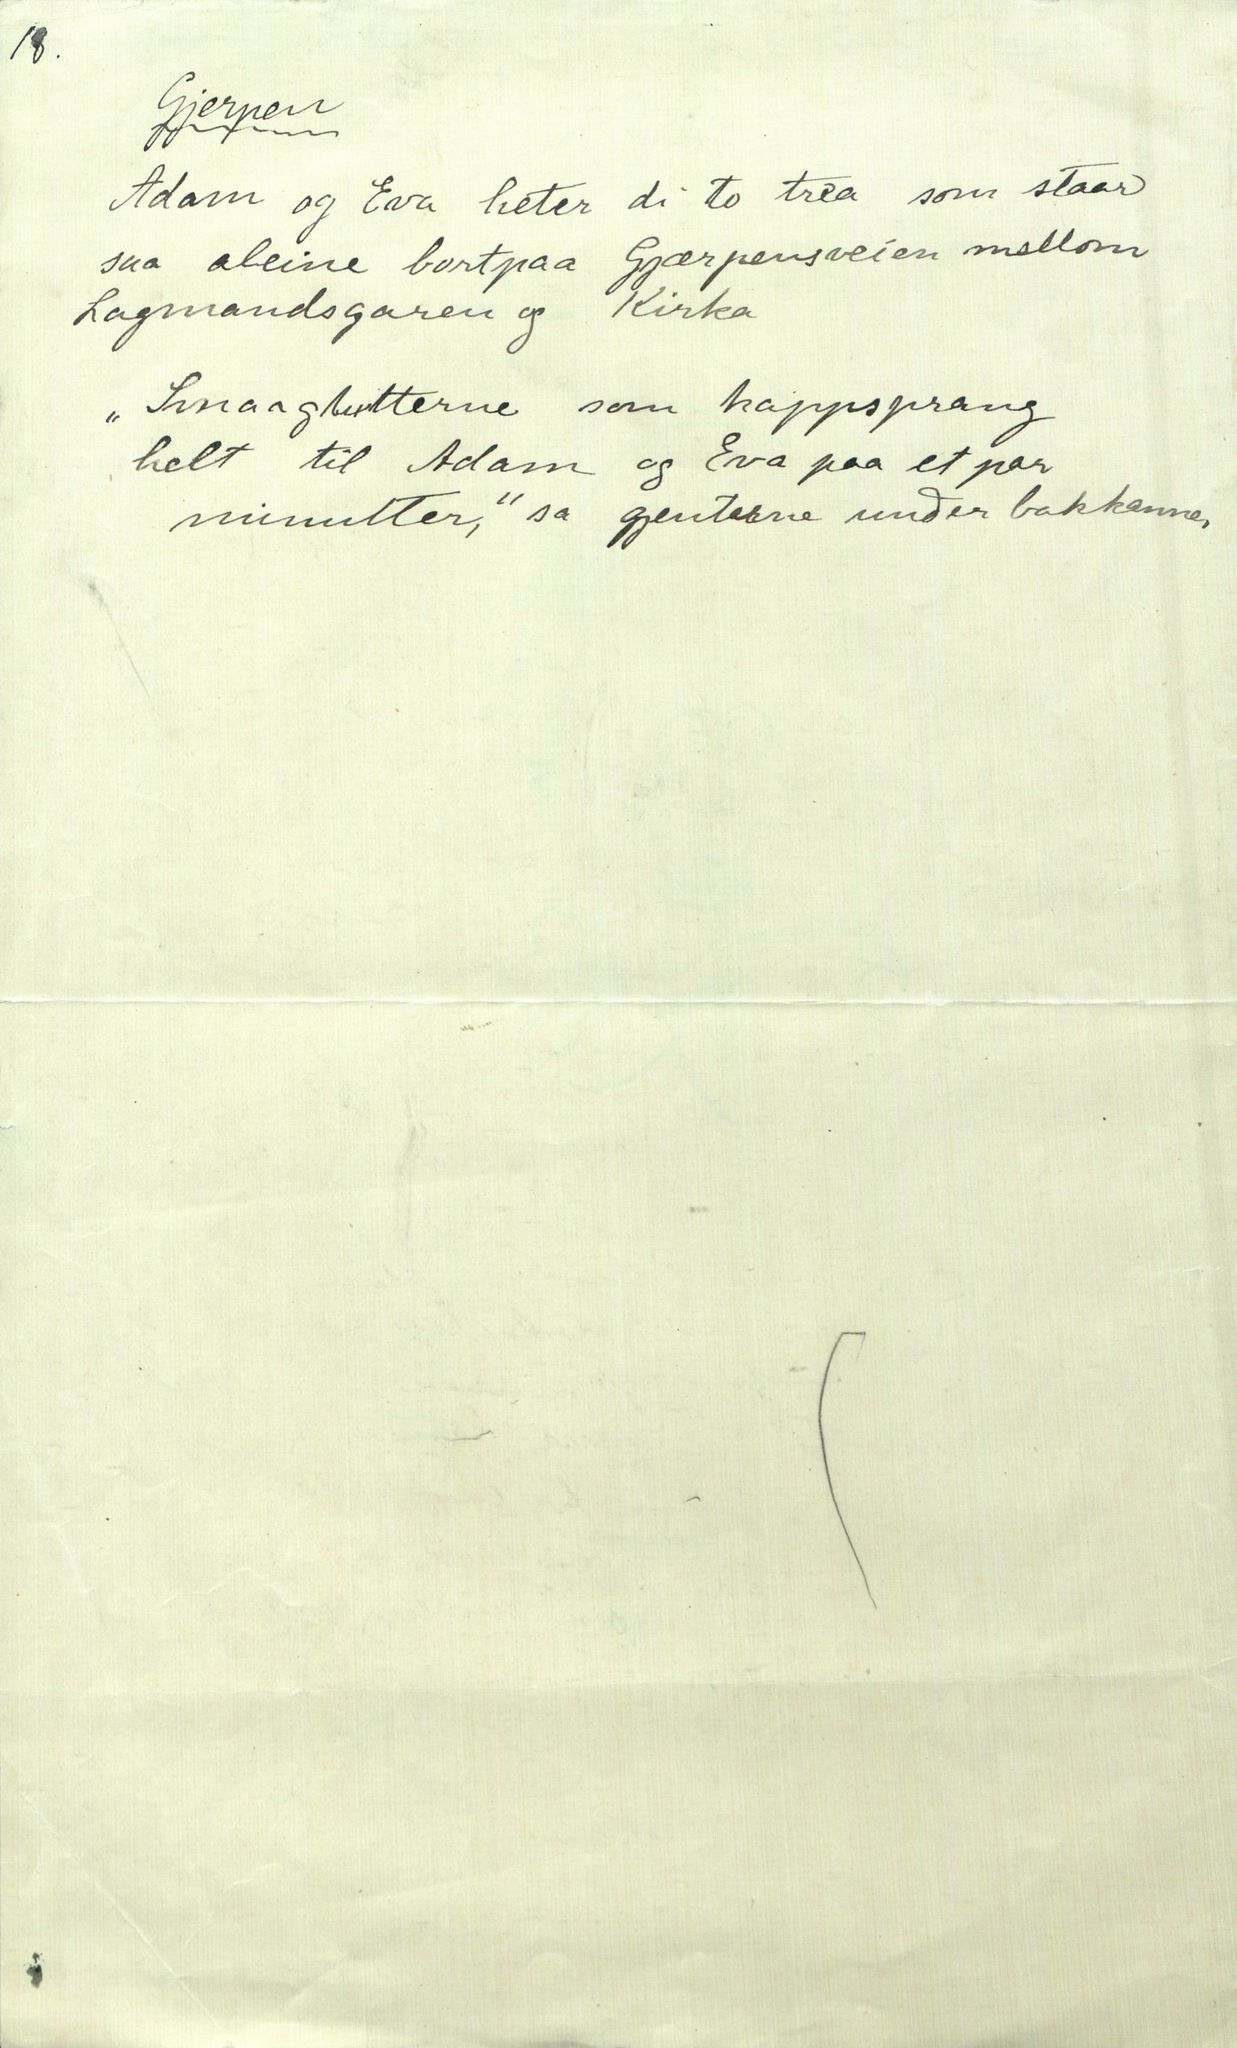 18.
Gjerpen
Adam og Eva heter di to trea som staar
saa aleine bortpaa Gjærpensveien mellom
Lagmandsgaren og Kirka
„Smaaglutterne som kappsprang
helt til Adam og Eva paa et par
minutter,“ sa gjenterne under bakkanne,